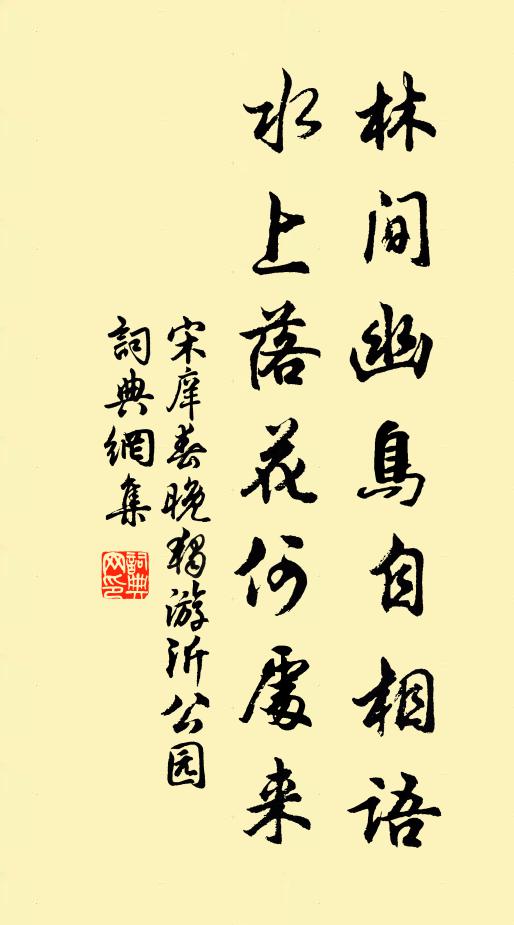 林间幽鳥自相语
水上落花何處来
宋庠春晚独游沂公园
詞典網集
詞典网印